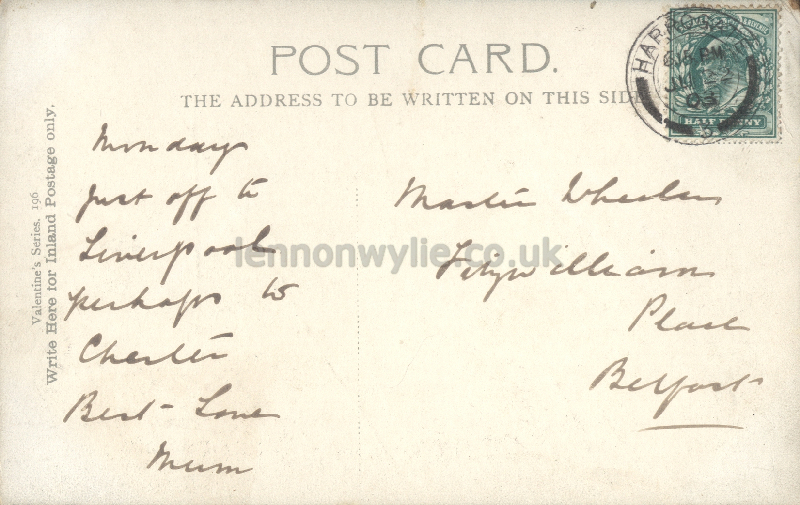 POST CARD.
THE ADDRESS TO BE WRITTEN ON THIS SIDE
Valentine's Series, 196
Write Here for Inland Postage only.
Monday
Just off to
Liverpool
perhaps to
Chester
Best Love
Mum
Master Wheeler
Fitzwilliam
Place
Belfast
lennonwylie.co.uk
HALF PENNY